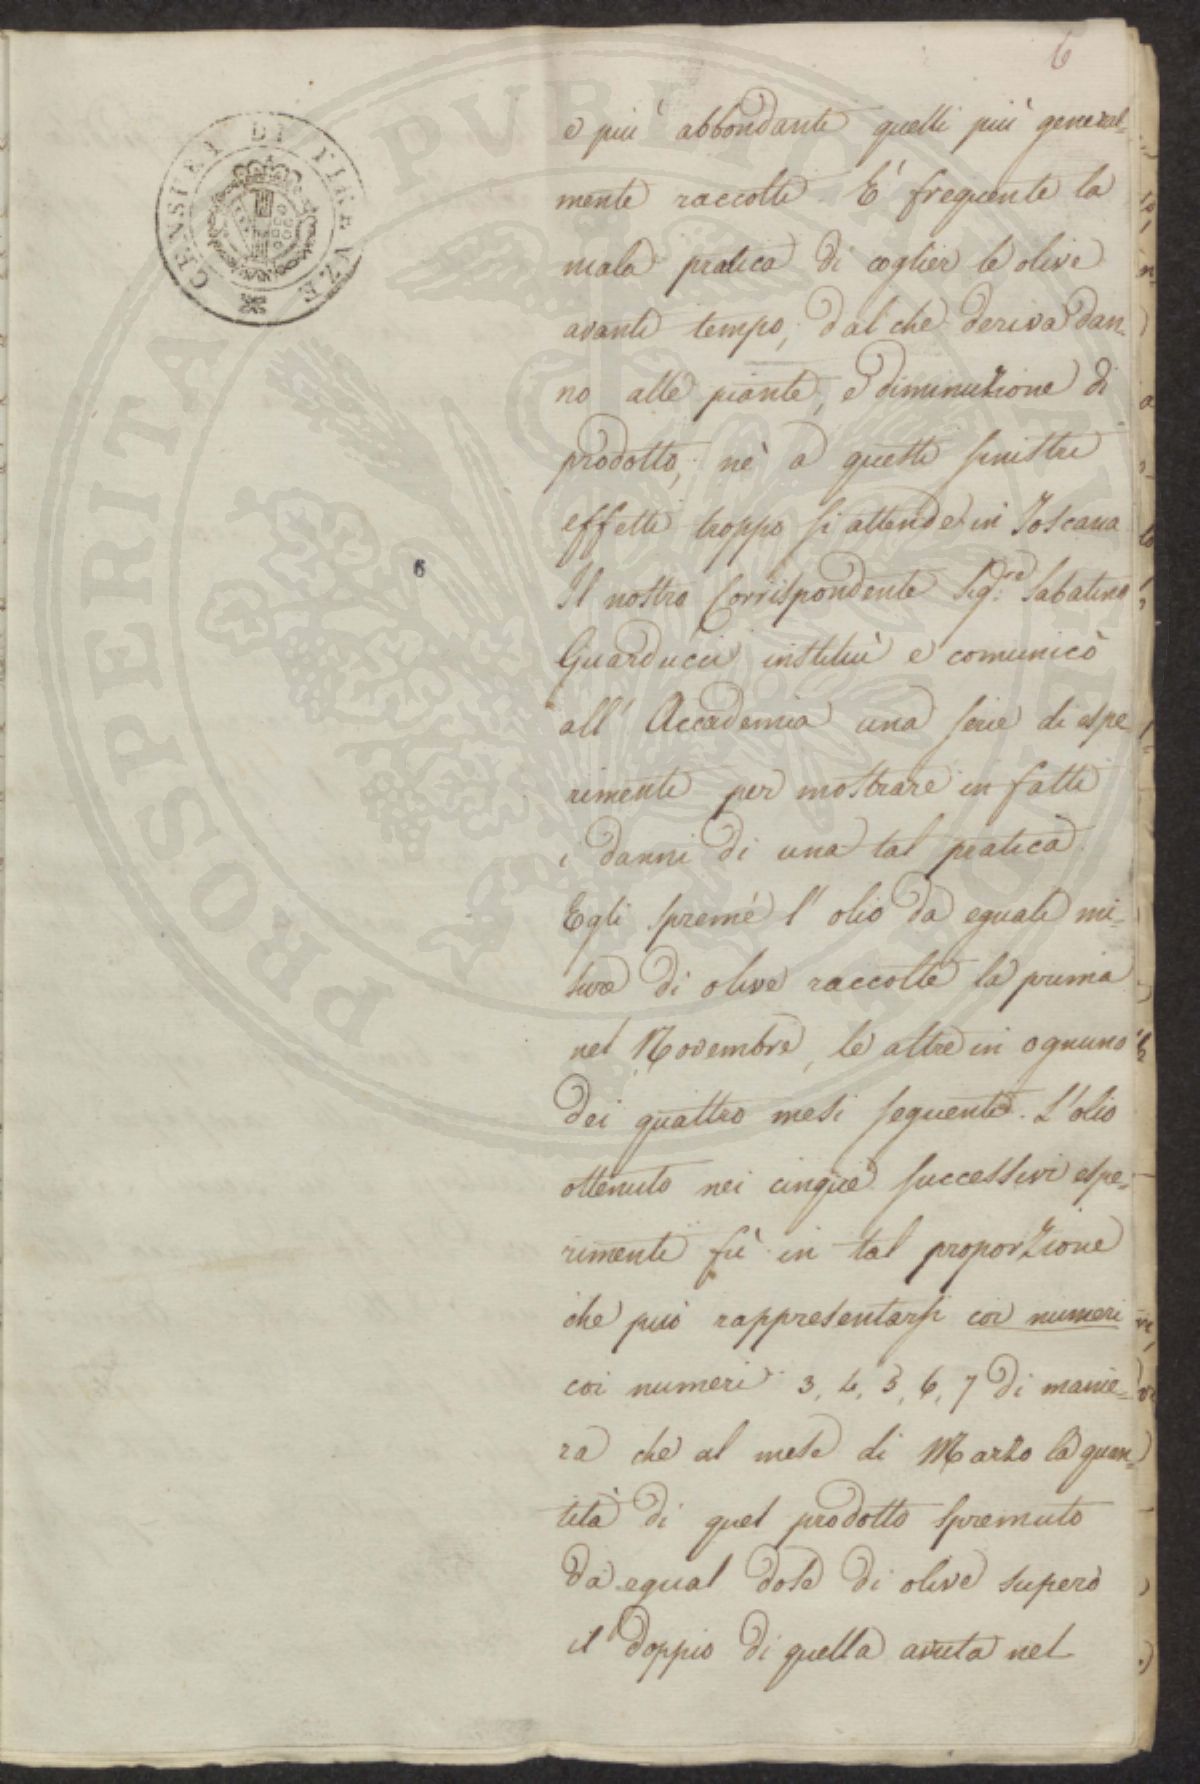 6
CENSIET DI FIRENZE
PROSPERITA PUBLICA
6
e più abbondante quelli più general=
mente raccolti. E' frequente la
mala pratica di coglier le olive
avanti tempo, dal che deriva dan=
no alle piante, e diminuzione di
prodotto, nè a questi sinistri
effetti troppo si attende in Toscana
Il nostro Corrispondente Sig.re Sabatino
Guarducci instituì e comunicò
all' Accademia una serie di espe
rimenti per mostrare in fatti
i danni di una tal pratica
Egli spremè l' olio da eguali mi=
sure di olive raccolte la prima
nel Novembre, le altre in ognuno
dei quattro mesi seguenti. L'olio
ottenuto nei cinque successivi espe=
rimenti fù in tal proporzione
che può rappresentarsi coi numeri
coi numeri 3, 4, 5, 6, 7 di manie=
ra che al mese di Marzo la quan=
tità di quel prodotto spremuto
da egual dose di olive superò
il doppio di quella avuta nel